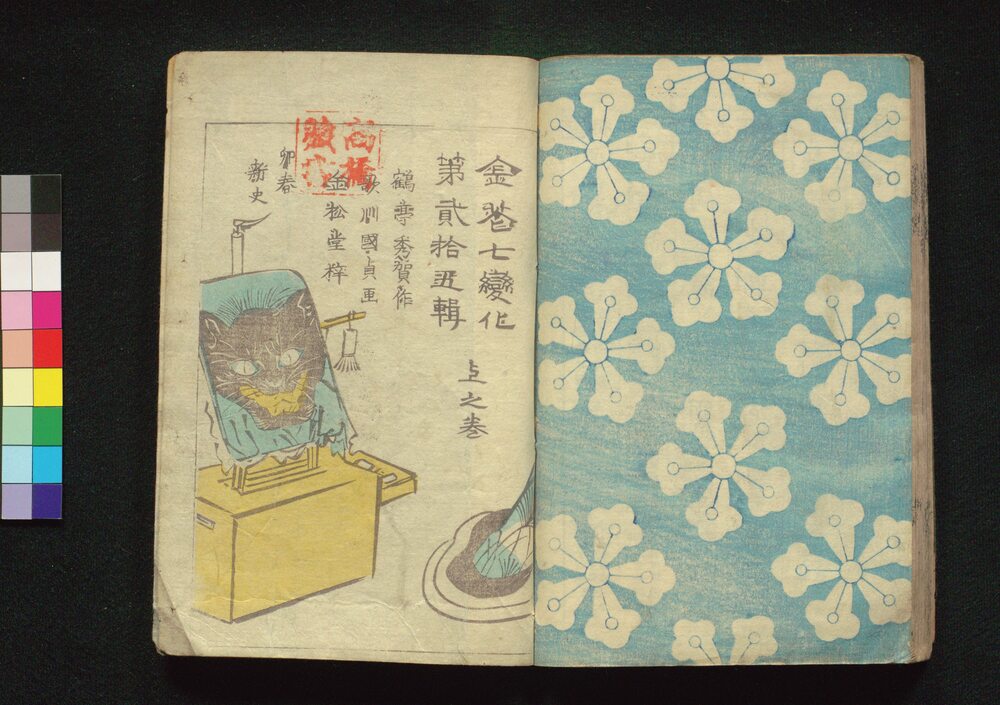 金花七變化
第貳拾五輯
上之巻
鶴亭秀賀作
歌川國貞画
金松堂梓
卯春
新史
高橋